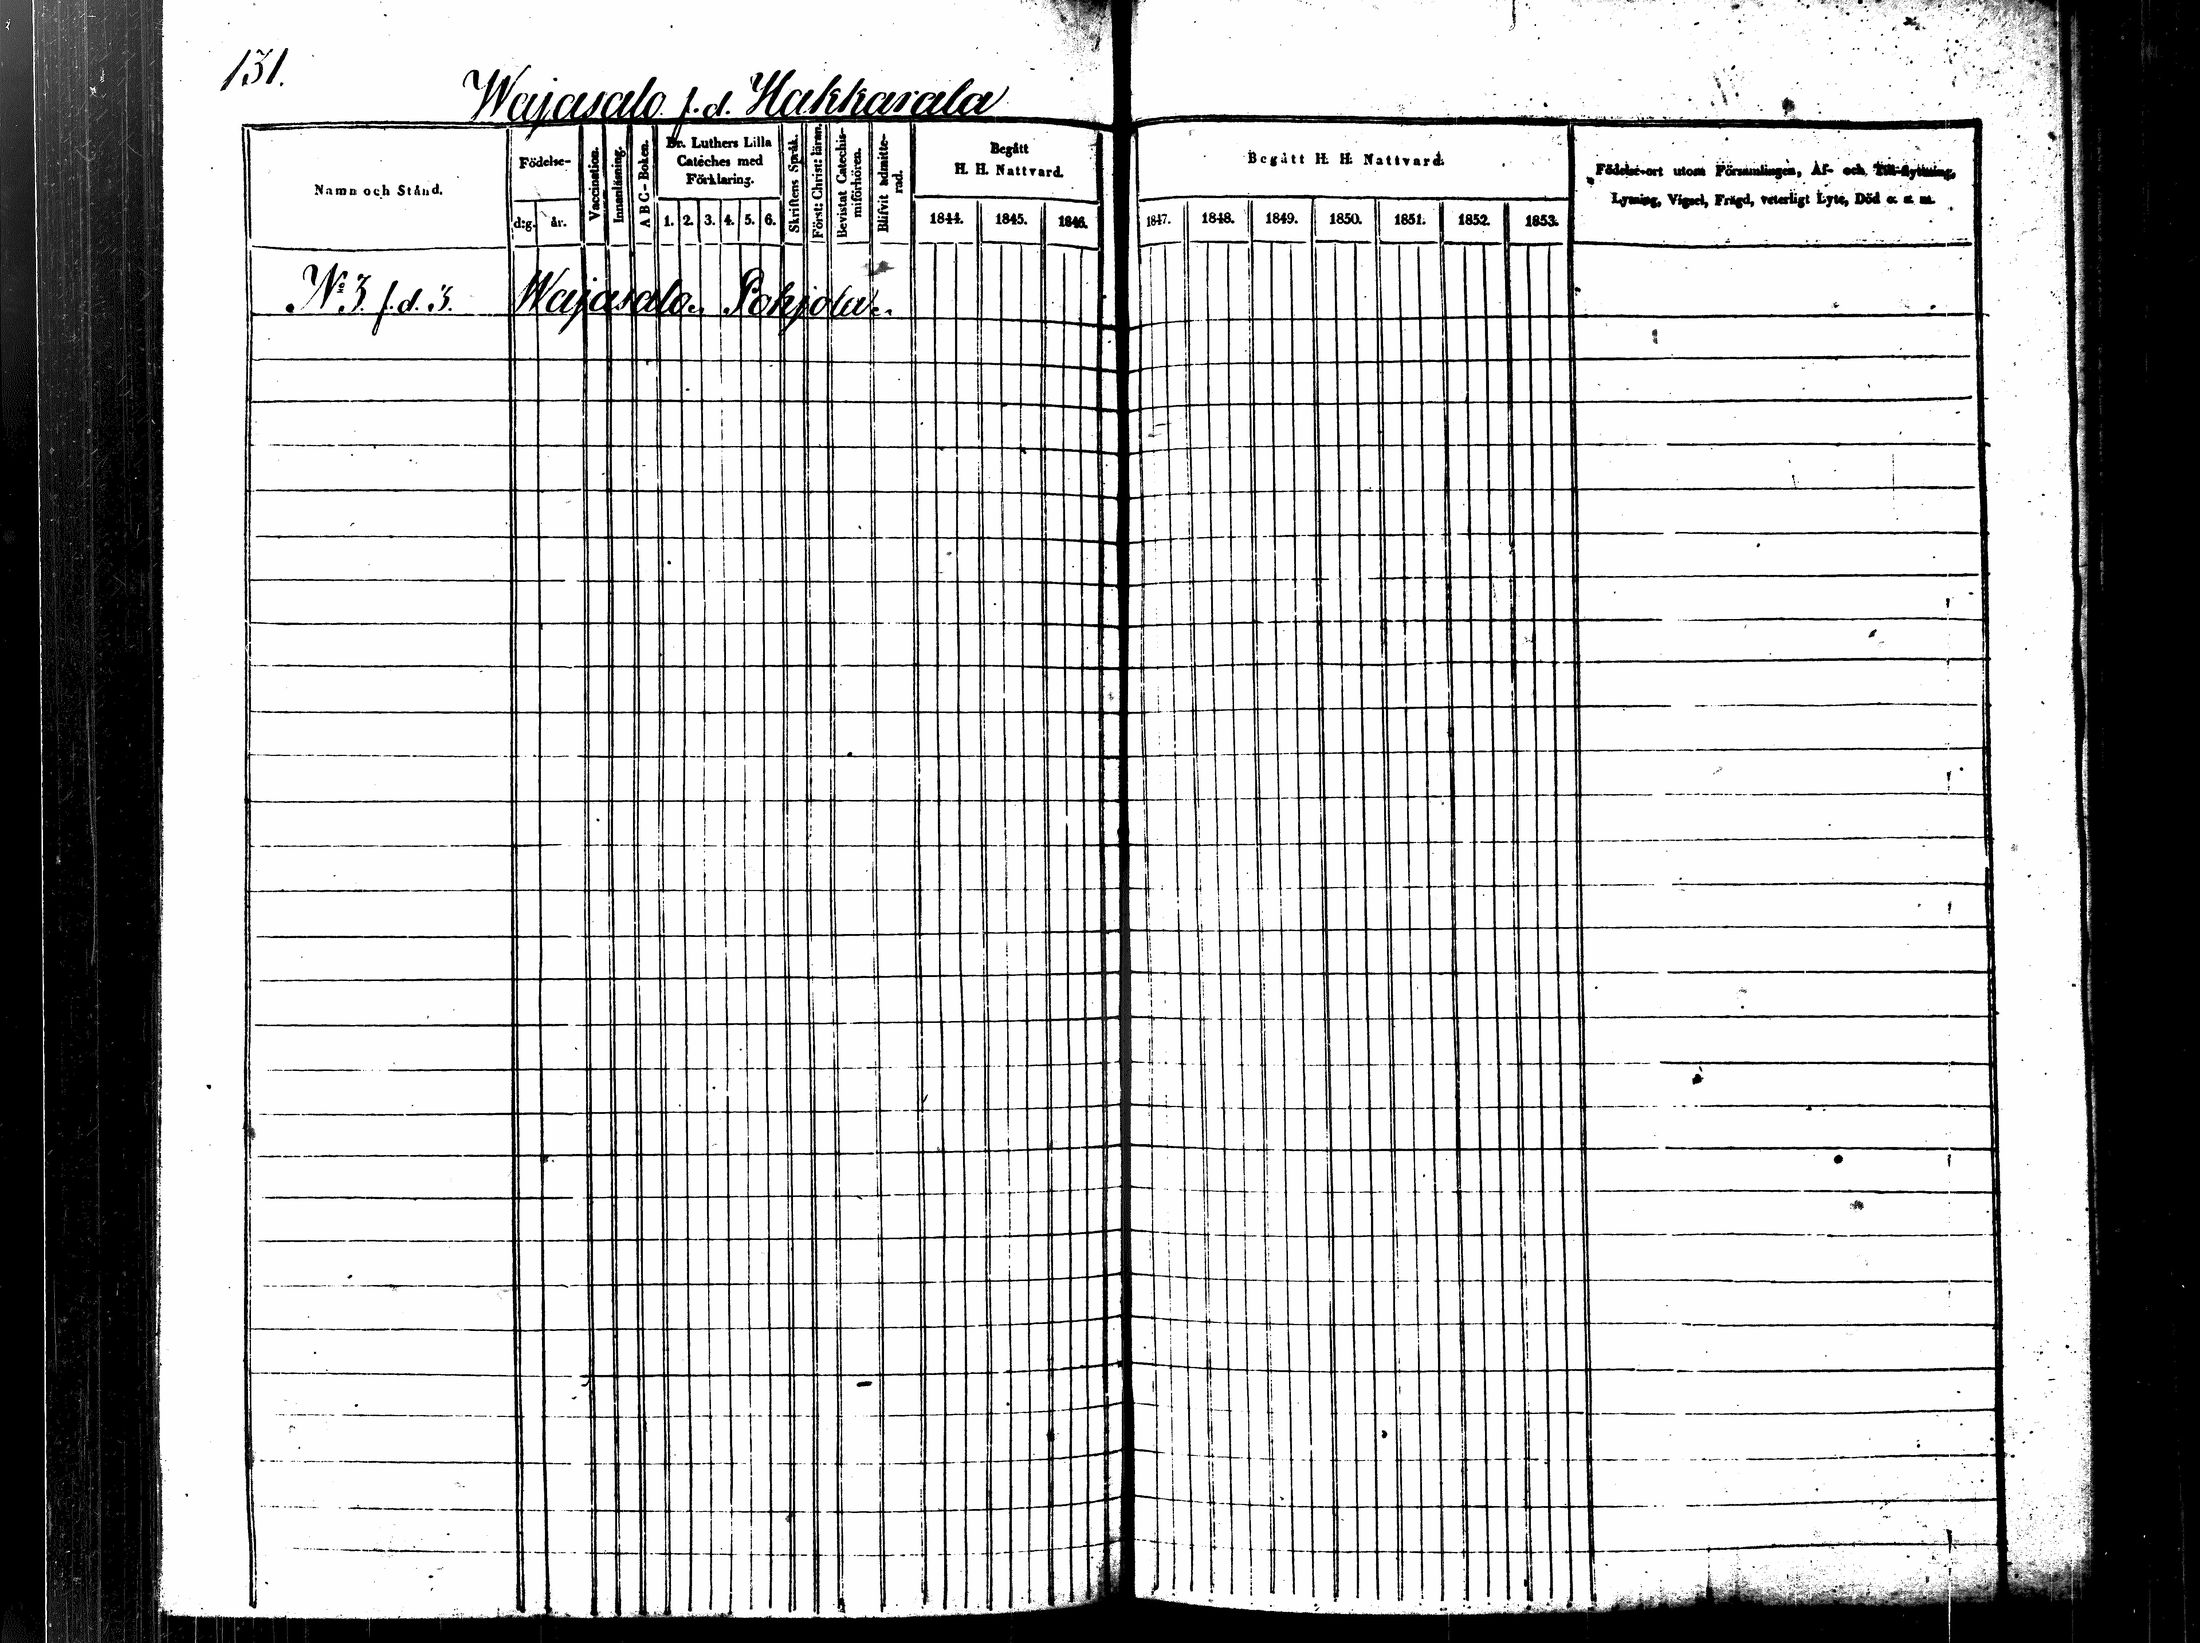 131.
Wajasalo f.d. Hakkarala
Namn och Stånd.
Födelse-
d:g. år.
Vaccination.
Innanläsning.
A B C - Boken.
Dr. Luthers Lilla
Catéches med
Förklaring.
1. 2. 3. 4. 5. 6.
Skriftens Språk.
Först: Christ: läran.
Bevistat Catechis-
miförhören.
Blifvit admitte-
rad.
Begått
H. H. Nattvard.
1844. 1845. 1846.
Begått H. H. Nattvard.
1847. 1848. 1849. 1850. 1851. 1852. 1853.
Födelse-ort utom Församlingen, Af- och Till-flyttning,
Lysning, Vigsel, Frägd, veterligt Lyte, Död o. s. m.
No 3 f.d. 3. Wajasalo. Pohjola.